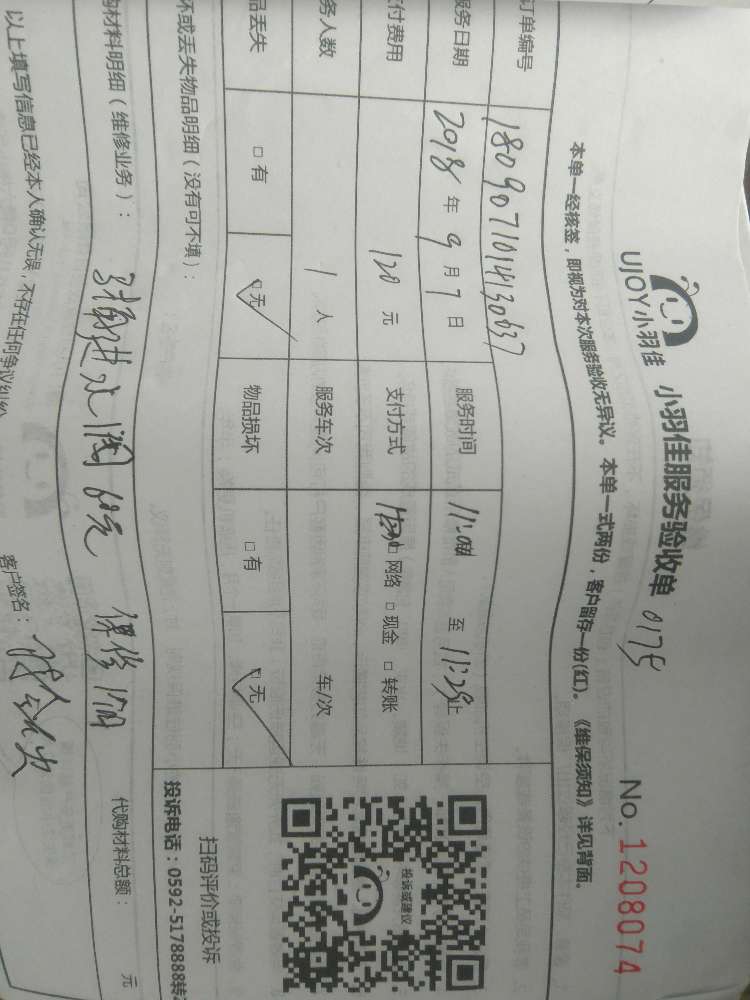 UJOY小羽佳 小羽佳服务验收单 0175 No.1208074
本单一经核签，即视为对本次服务验收无异议。本单一式两份，客户留存一份(红)。《维保须知》详见背面。
订单编号 1809071014130037
服务日期 2018年9月7日 服务时间 至 11:25止
支付费用 120元 支付方式 □网络 □现金 □转账
务人数 1人 服务车次 车/次
品丢失 □有 □无 物品损坏 □有 □无
坏或丢失物品明细（没有可不填）：
购材料明细（维修业务）： 进水阀 60元 保修 代购材料总额： 元
以上填写信息已经本人确认无误，不存在任何争议纠纷 客户签名：
投诉或建议
扫码评价或投诉
投诉电话：0592-5178888转